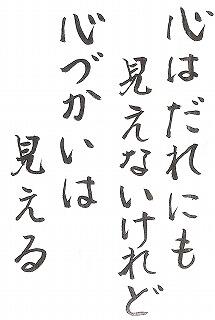 心はだれにも
見えないけれど
心づかいは
見える